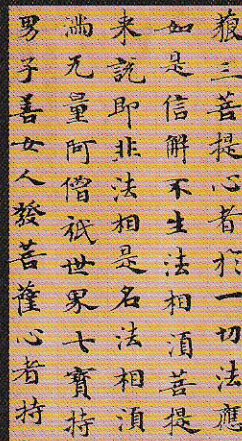 藐三菩提心者扵一切法應
如是信解不生法相湏菩提
来說即非法相是名法相湏
滿无量阿僧祇世界七寶持
男子善女人發菩薩心者持